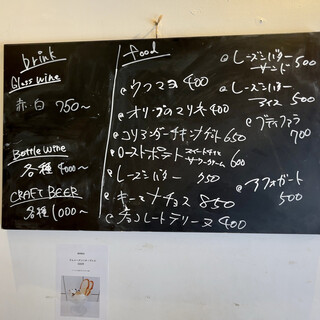 Drink
Glass wine
赤・白 750〜
Bottle wine
各種 4000〜
CRAFT BEER
各種 1000〜
food
ウフマヨ 400
オリーブのマリネ 400
コリアンダーチキンナゲット 650
ローストポテト スイートチリ サワークリーム 600
レーズンバター 350
チーズナチョス 850
チョコレートテリーヌ 400
レーズンバターサンド 500
レーズンバターアイス 500
700
アフォガード 500